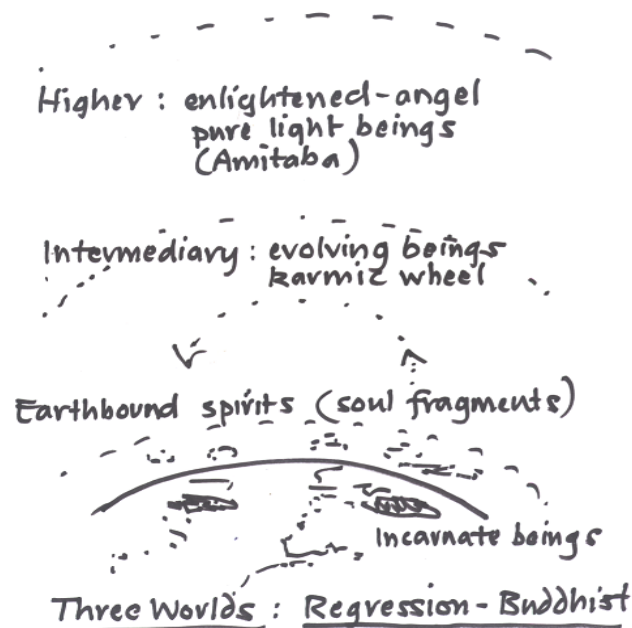 Higher : enlightened-angel
pure light beings
(Amitaba)
Intermediary : evolving beings
karmic wheel
Earthbound spirits (soul fragments)
Incarnate beings
Three Worlds : Regression - Buddhist